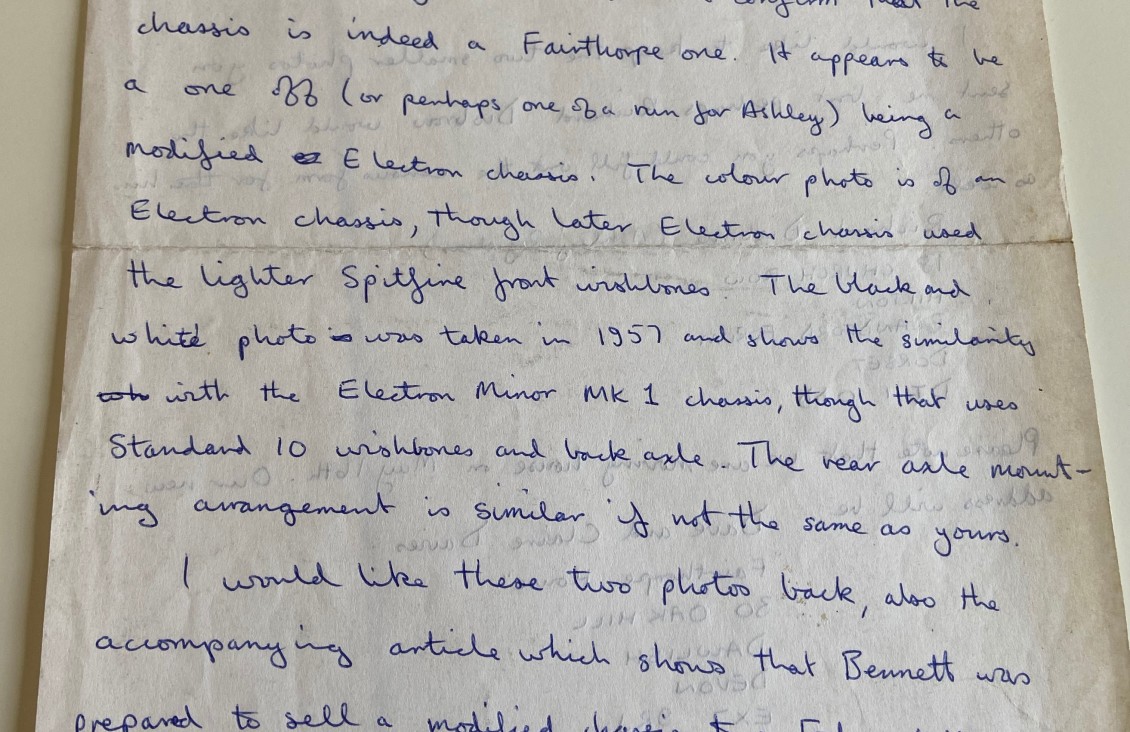 confirm that the
chassis is indeed a Fairthorpe one. It appears to be
a one off (or perhaps one of a run for Ashley) being a
modified Electron chassis. The colour photo is of an
Electron chassis, though later Electron chassis used
the lighter Spitfire front wishbones. The black and
white photo was taken in 1957 and shows the similarity
with the Electron Minor MK 1 chassis, though that uses
Standard 10 wishbones and back axle. The rear axle mount-
ing arrangement is similar if not the same as yours.
I would like these two photos back, also the
accompanying article which shows that Bennett was
prepared to sell a modified chassis to